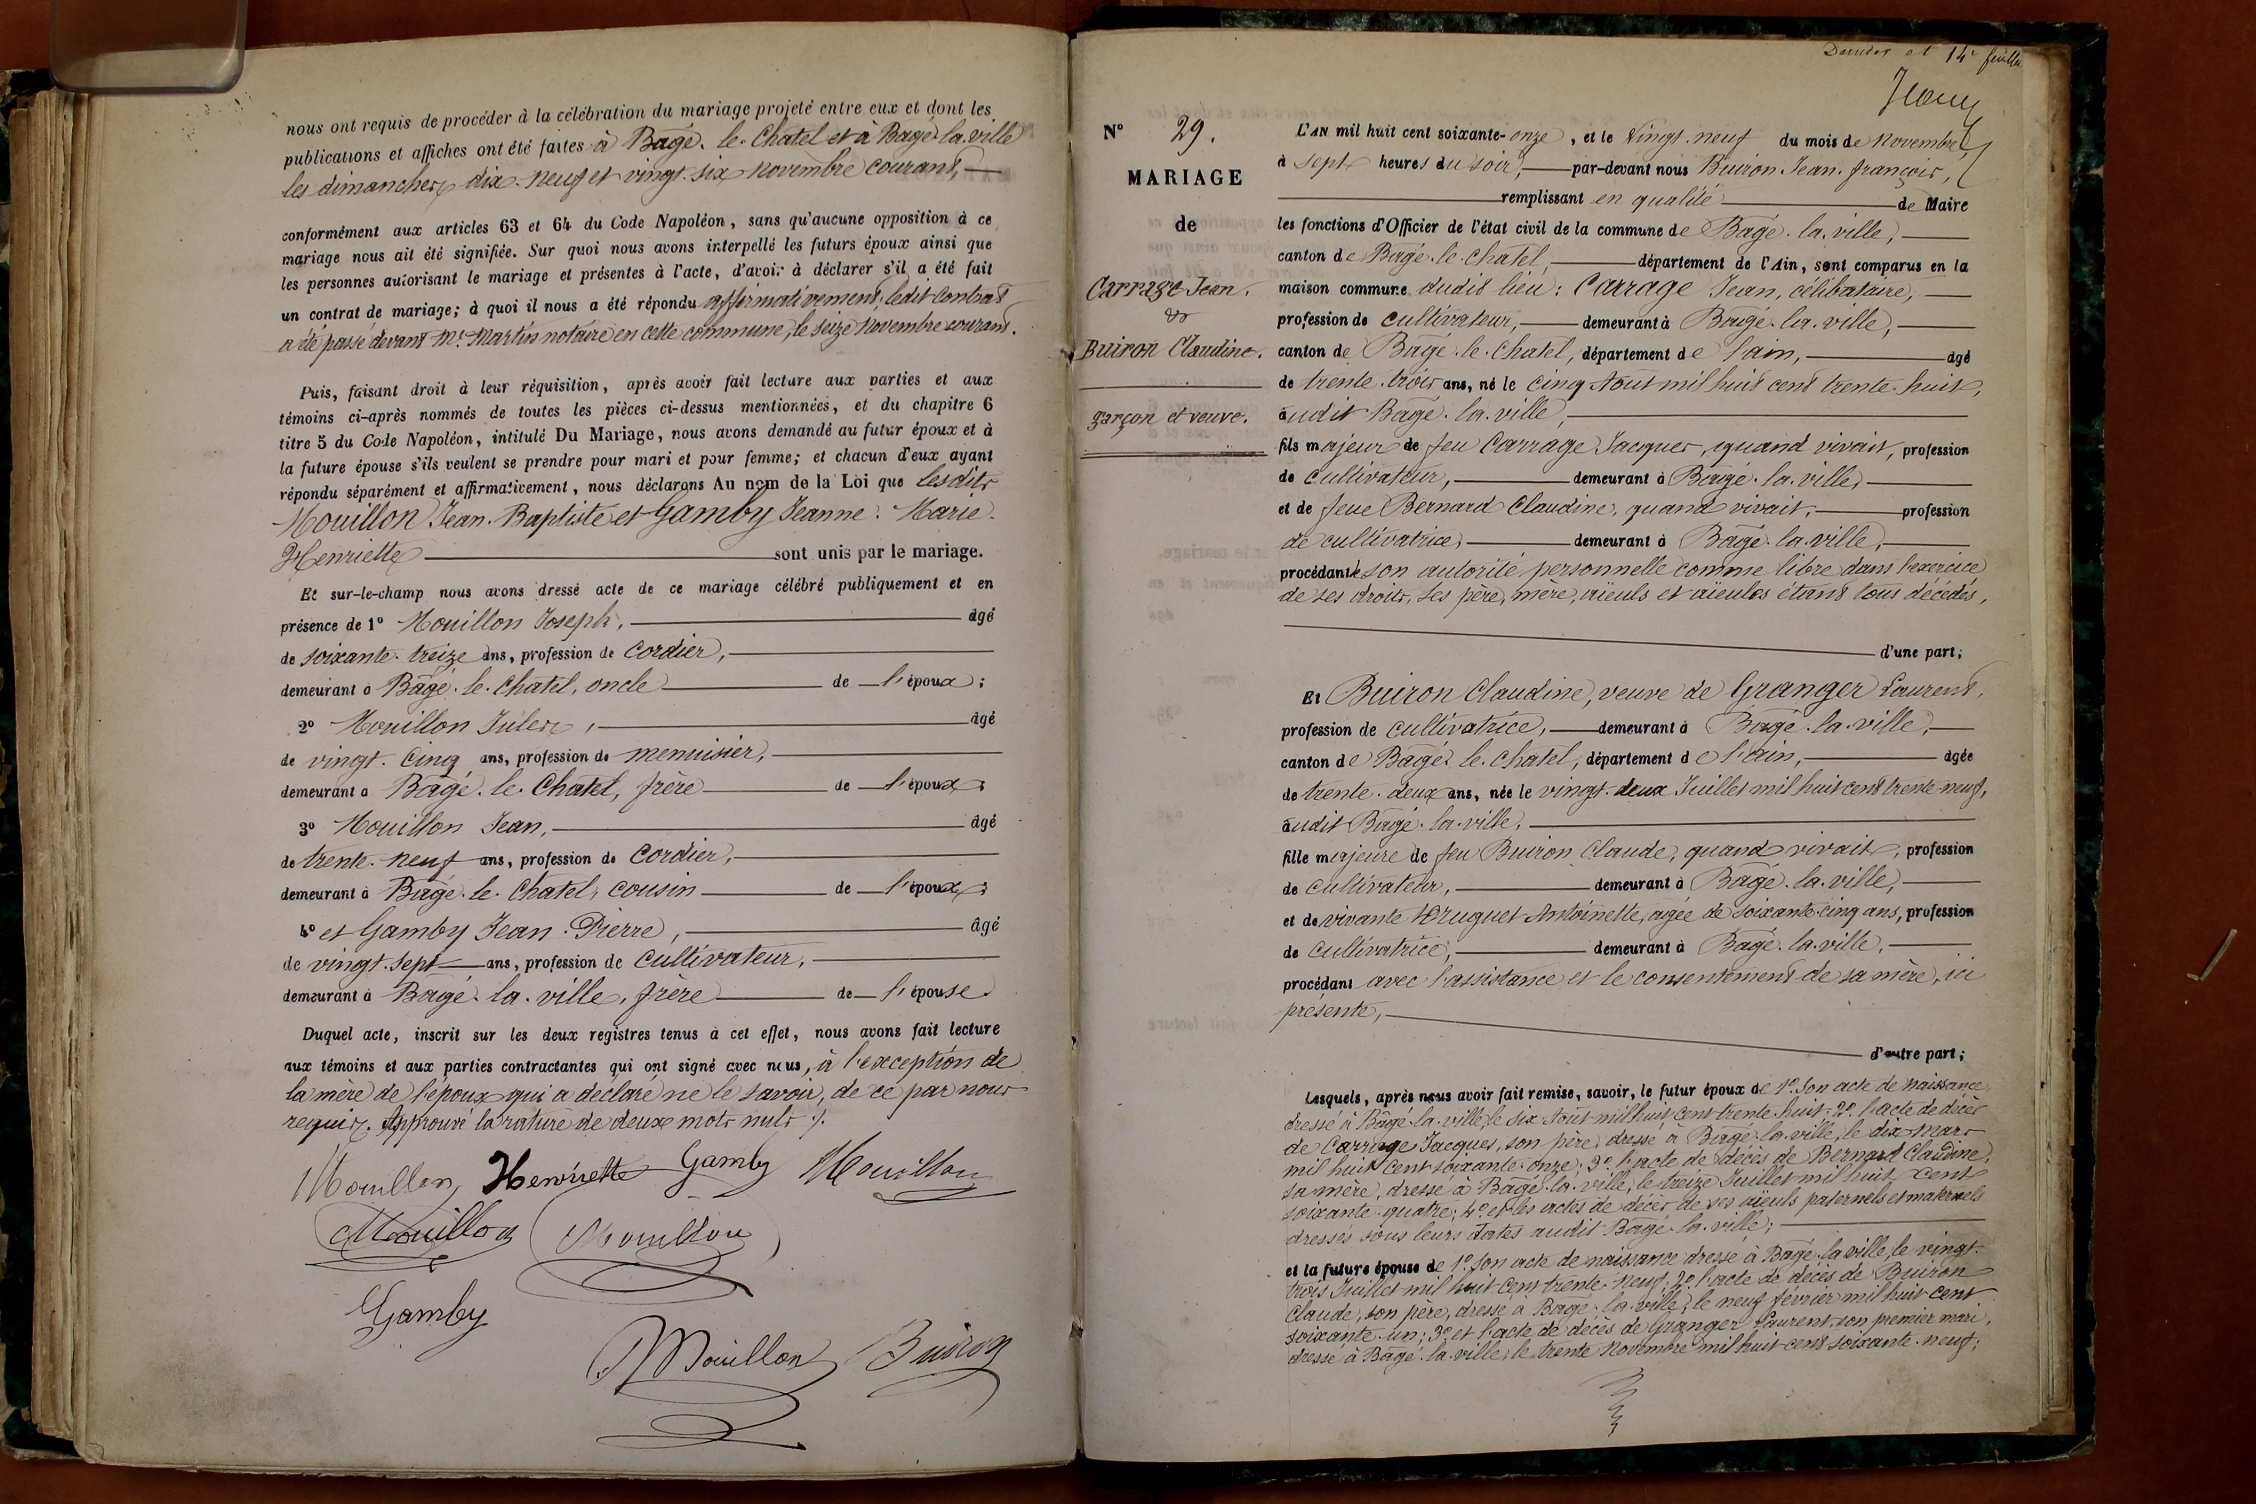 nous ont requis de procéder à la célébration du mariage projeté entre eux et dont les
publications et affiches ont été faites à Bagé-le-Chatel et à Bagé-la-ville
les dimanches dix-neuf et vingt-six novembre courant,
conformément aux articles 63 et 64 du Code Napoléon, sans qu'aucune opposition à ce
mariage nous ait été signifiée. Sur quoi nous avons interpellé les futurs époux ainsi que
les personnes autorisant le mariage et présentes à l'acte, d'avoir à déclarer s'il a été fait
un contrat de mariage; à quoi il nous a été répondu affirmativement, ledit contrat
a été passé devant Me. Martin notaire en cette commune, le seize Novembre courant.
Puis, faisant droit à leur réquisition, après avoir fait lecture aux parties et aux
témoins ci-après nommés de toutes les pièces ci-dessus mentionnées, et du chapitre 6
titre 5 du Code Napoléon, intitulé Du Mariage, nous avons demandé au futur époux et à
la future épouse s'ils veulent se prendre pour mari et pour femme; et chacun d'eux ayant
répondu séparément et affirmativement, nous déclarons Au nom de la Loi que lesdits
Mouillon Jean-Baptiste et Gamby Jeanne-Marie-
Henriette sont unis par le mariage.
Et sur-le-champ nous avons dressé acte de ce mariage célébré publiquement et en
présence de 1º Mouillon Joseph, âgé
de soixante-treize ans, profession de cordier,
demeurant à Bagé-le-Chatel, oncle de l'époux;
2º Mouillon Jules, âgé
de vingt-cinq ans, profession de menuisier,
demeurant à Bagé-le-Chatel, frère de l'époux;
3º Mouillon Jean, âgé
de trente-neuf ans, profession de cordier,
demeurant à Bagé-le-Chatel, cousin de l'époux;
4º et Gamby Jean-Pierre, âgé
de vingt-sept ans, profession de cultivateur,
demeurant à Bagé-la-ville, frère de l'épouse.
Duquel acte, inscrit sur les deux registres tenus à cet effet, nous avons fait lecture
aux témoins et aux parties contractantes qui ont signé avec nous, à l'exception de
la mère de l'époux qui a déclaré ne le savoir, de ce par nous
requis. Approuvé la rature de deux mots nuls
Mouillon Henriette Gamby Mouillon
Mouillon Mouillon
Gamby
Mouillon Buiron
Dernier et 14e feuillet
Nº 29.
MARIAGE
de
Carrage Jean.
&
Buiron Claudine.
garçon et veuve.
L'AN mil huit cent soixante-onze, et le vingt-neuf du mois de novembre,
à sept heures du soir, par-devant nous Buiron Jean-françois,
remplissant en qualité de Maire
les fonctions d'Officier de l'état civil de la commune de Bagé-la-ville,
canton de Bagé-le-Chatel, département de l'Ain, sont comparus en la
maison commune dudit lieu: Carrage Jean, célibataire,
profession de cultivateur, demeurant à Bagé-la-ville,
canton de Bagé-le-Chatel, département de l'ain, âgé
de trente-trois ans, né le cinq Aout mil huit cent trente-huit,
audit Bagé-la-ville,
fils majeur de feu Carrage Jacques, quand vivait, profession
de cultivateur, demeurant à Bagé-la-ville,
et de feue Bernard Claudine, quand vivait, profession
de cultivatrice, demeurant à Bagé-la-ville,
procédant de son autorité personnelle comme libre dans l'exercice
de ses droits, ses père, mère, aïeuls et aïeules étant tous décédés,
d'une part;
Et Buiron Claudine, veuve de Granger Laurent,
profession de cultivatrice, demeurant à Bagé-la-ville,
canton de Bagé-le-Chatel, département de l'ain, âgée
de trente-deux ans, née le vingt-deux Juillet mil huit cent trente-neuf,
audit Bagé-la-ville,
fille majeure de feu Buiron Claude, quand vivait, profession
de cultivateur, demeurant à Bagé-la-ville,
et de vivante Druguet Antoinette, agée de soixante-cinq ans, profession
de cultivatrice, demeurant à Bagé-la-ville,
procédant avec l'assistance et le consentement de sa mère, ici
présente,
d'autre part;
Lesquels, après nous avoir fait remise, savoir, le futur époux de 1º Son acte de naissance
dressé à Bagé-la-ville, le six Aout mil huit cent trente-huit; 2º l'acte de décès
de Carrage Jacques, son père, dressé à Bagé-la-ville, le dix Mars
mil huit cent soixante-onze; 3º l'acte de décès de Bernard Claudine,
sa mère, dressé à Bagé-la-ville, le treize Juillet mil huit cent
soixante-quatre; 4º et les actes de décès de ses aïeuls paternels et maternels
dressés sous leurs dates audit Bagé-la-ville;
et la future épouse de 1º Son acte de naissance dressé à Bagé-la-ville, le vingt-
trois Juillet mil huit cent trente-neuf; 2º l'acte de décès de Buiron
Claude, son père, dressé à Bagé-la-ville, le neuf février mil huit cent
soixante-un; 3º et l'acte de décès de Granger Laurent, son premier mari,
dressé à Bagé-la-ville, le trente Novembre mil huit cent soixante-neuf;